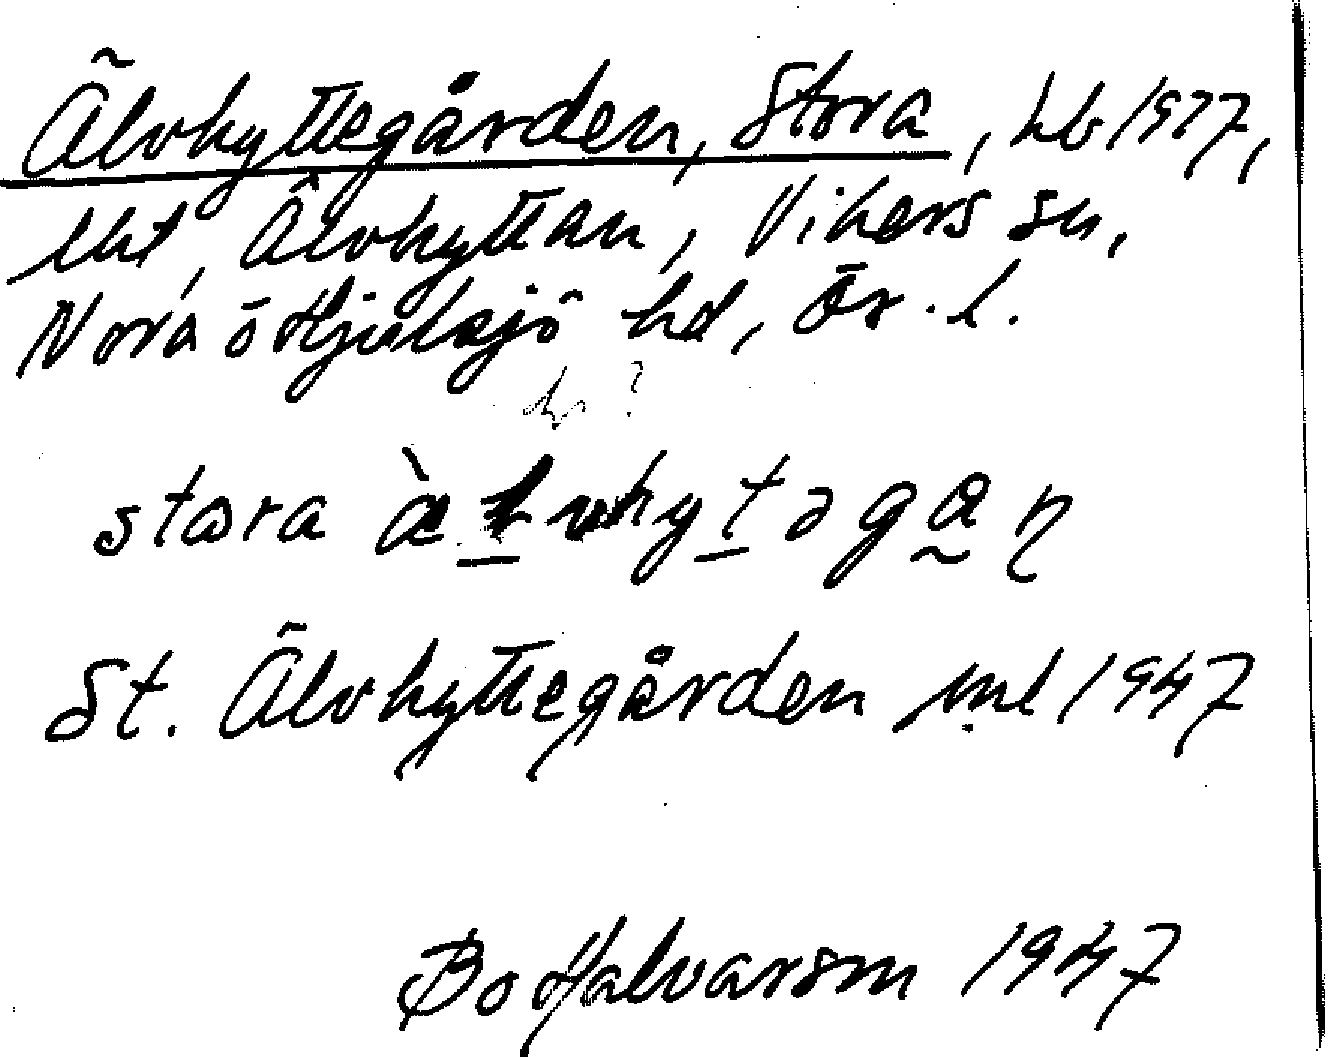 Älvhyttegården, Stora, hb 1977,
Älvhyttan, Vikers sn,
Nora o Hjulsjö hd, Ör. l.
?
stora
St. Älvhyttegården 1947
Bo Halvarson 1947